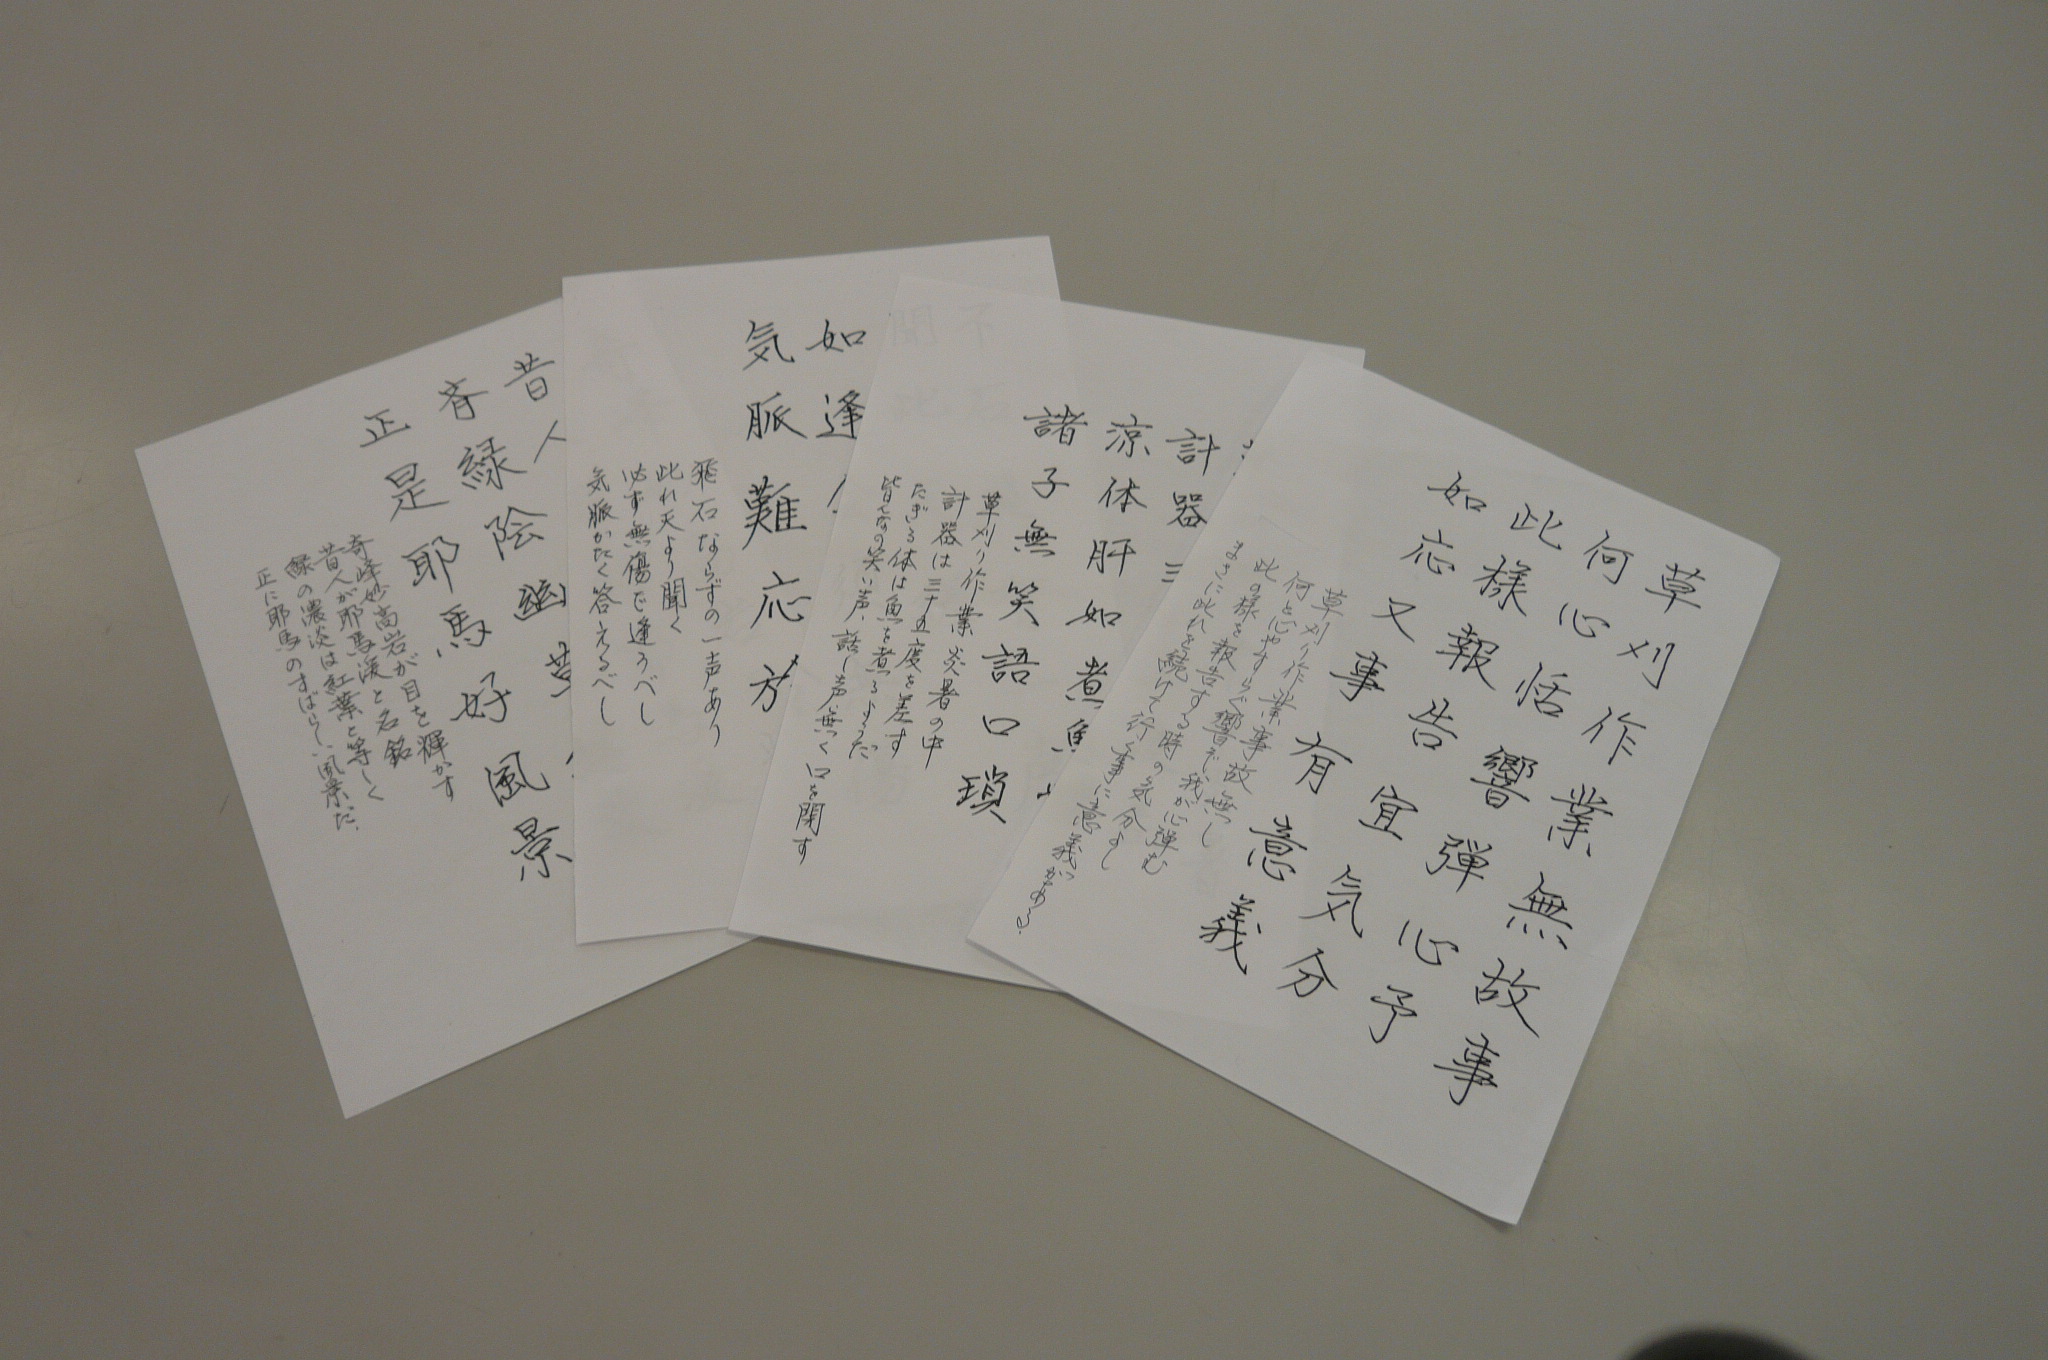 草刈作業無故事
何心恬響弾心予
此様報告宜気分
如応又事有意義
草刈り作業事故無し
何と心やすらぐ響きぞ我が心弾む
此の様を報告する時の気分よし
まさに此れを続けて行く事に意義がある.
計器三
涼体肝如煮魚
諸子無笑語口瑣
草刈り作業炎暑の中
計器は三十五度を差す
たぎる体は魚を煮るようだ
皆んなの笑い声、話し声無く口を閉す
如逢
気脈難応
飛石ならずの一声あり
此れ天より聞く
必ず無傷で逢うべし
気脈かたく答えるべし
昔人
斉緑陰幽
正是耶馬好風景
奇峰妙高岩が目を輝かす
昔人が耶馬渓と名銘
緑の濃淡は紅葉と等しく
正に耶馬のすばらしい風景だ.